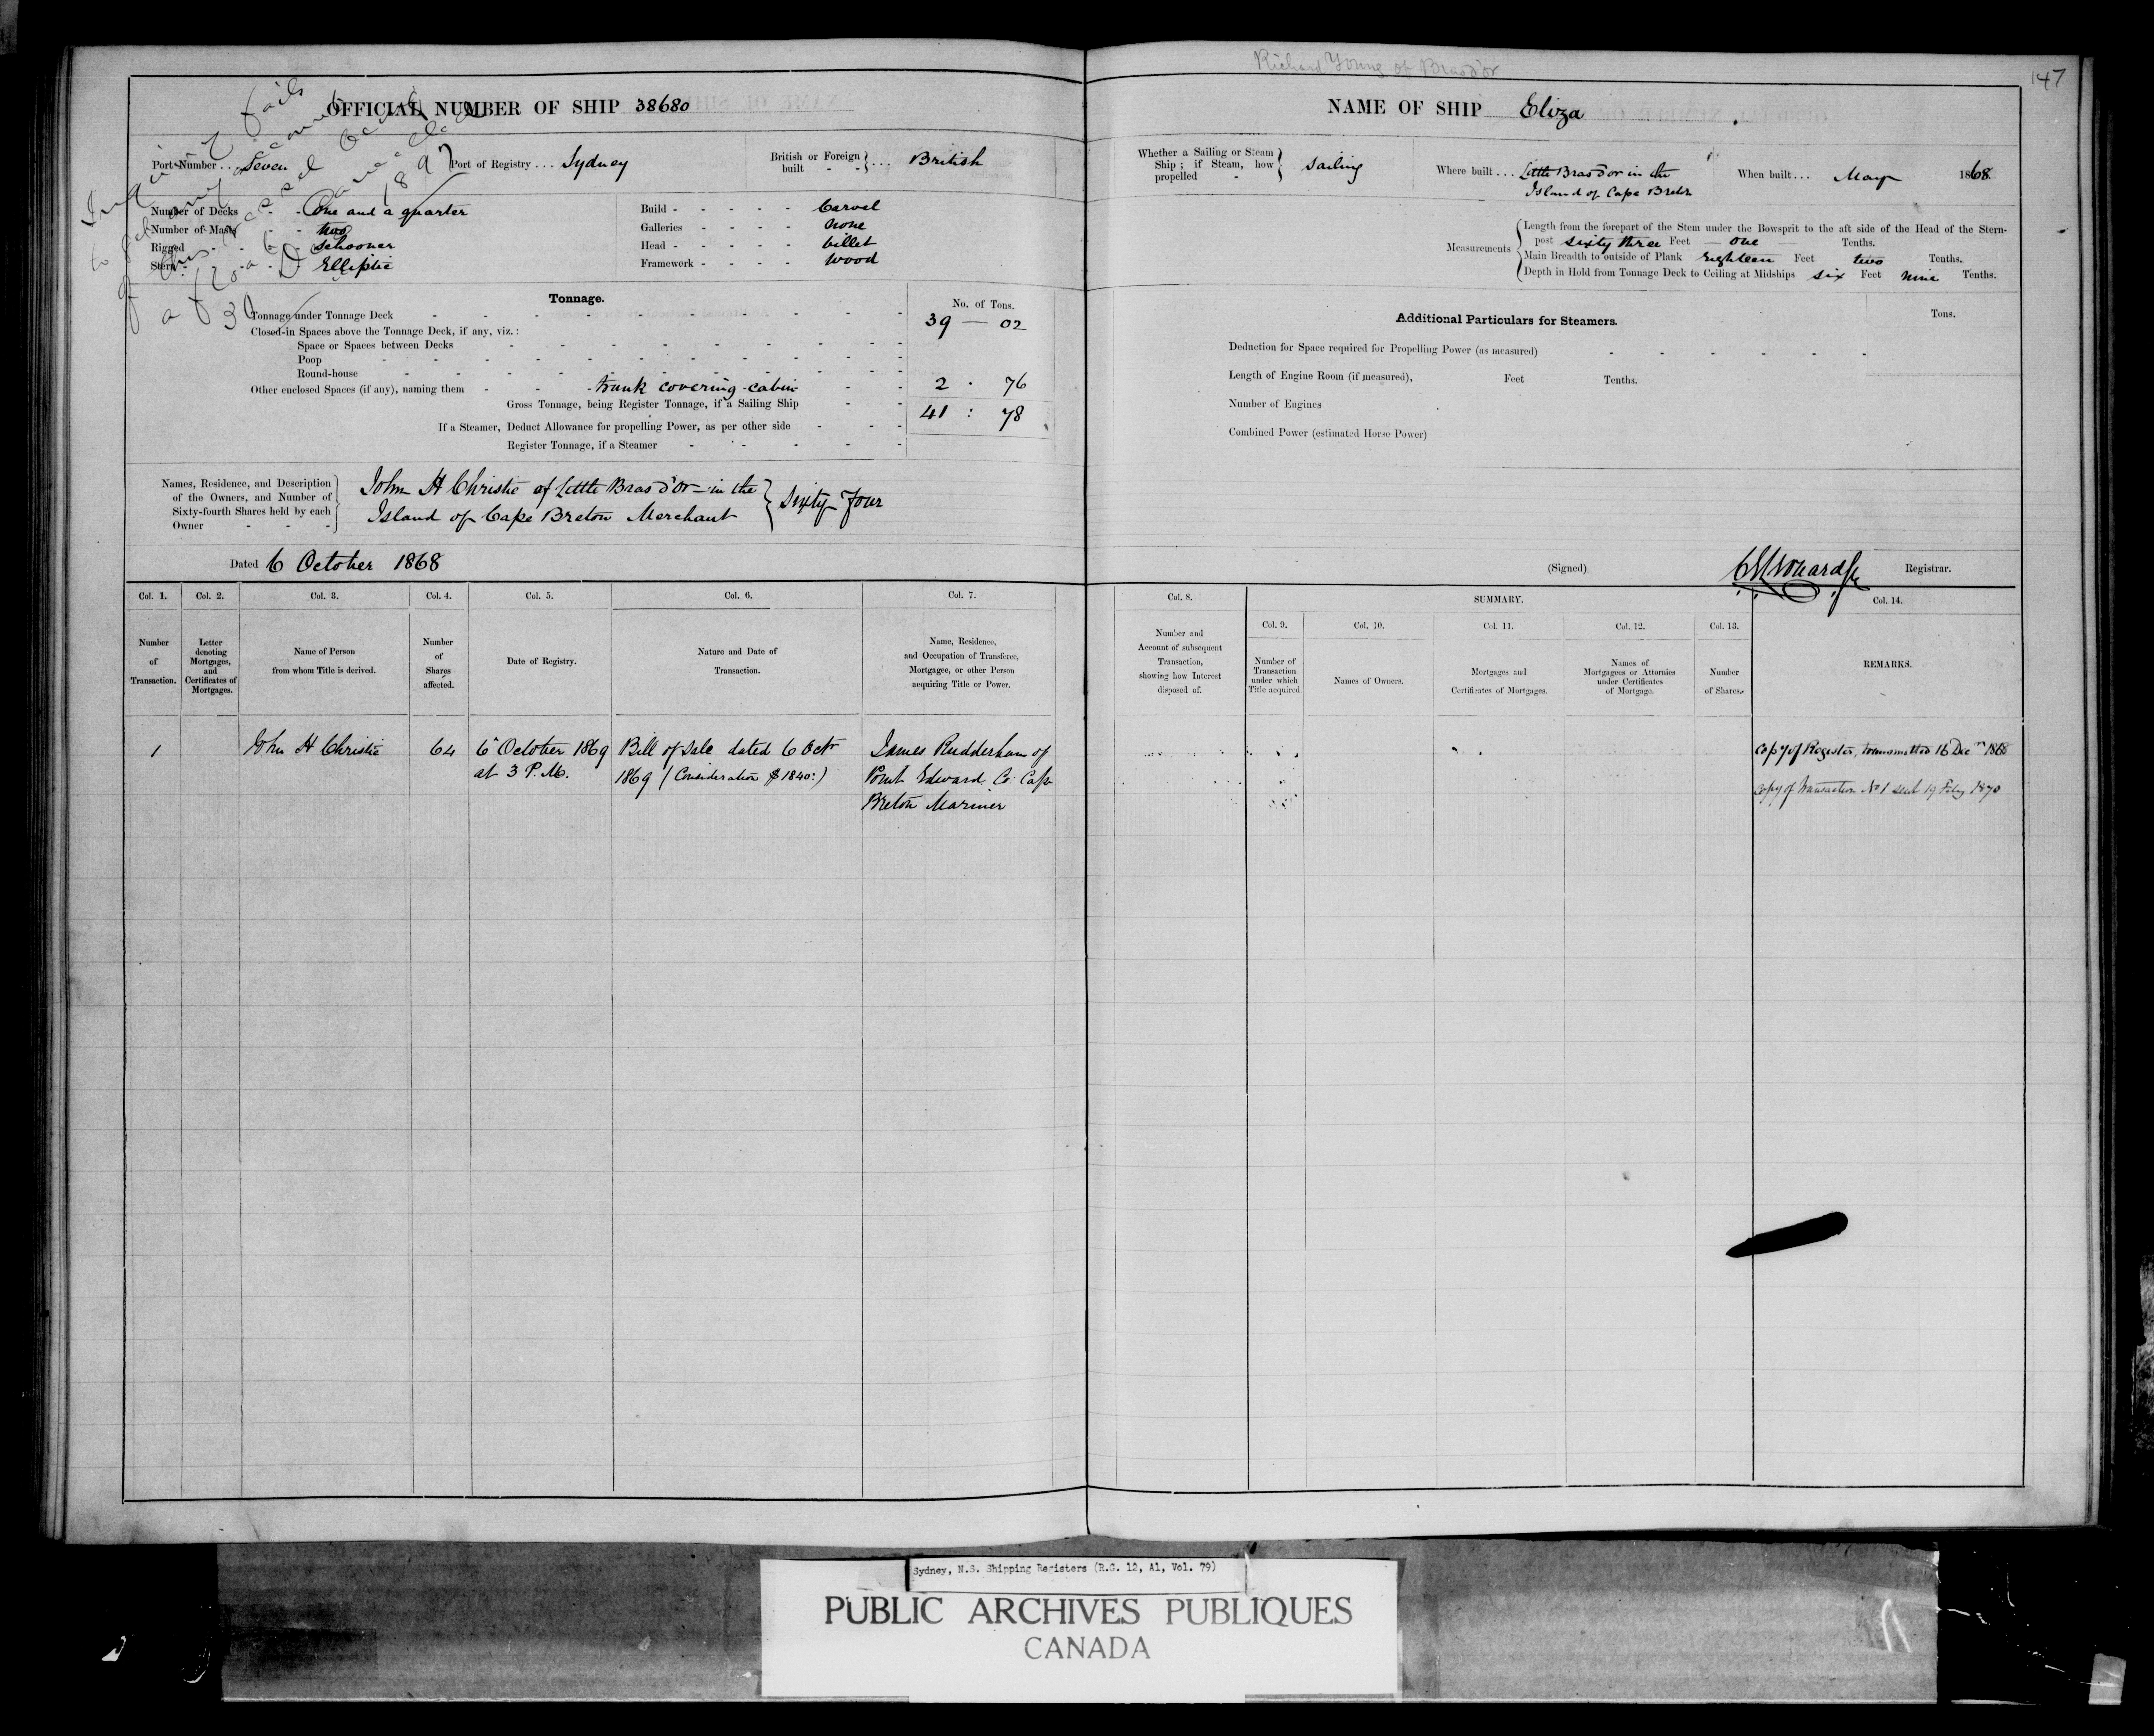 Richard Young of Brasd'or
147
OFFICIAL NUMBER OF SHIP 38680
NAME OF SHIP Eliza
Inquiry fails
to get any account
of this vessel
Port Number ... Seven
Port of Registry ... Sydney
British or Foreign built - - } ... British
Number of Decks - - One and a quarter
Number of Masts - - two
Rigged - - - Schooner
Stern - - - Elliptic
Build - - - - - Carvel
Galleries - - - - none
Head - - - - - billet
Framework - - - - wood
Tonnage.
No. of Tons.
Tonnage under Tonnage Deck - - - - 39 — 02
Closed-in Spaces above the Tonnage Deck, if any, viz.:
Space or Spaces between Decks
Poop
Round-house
Other enclosed Spaces (if any), naming them - - - trunk covering cabin - - 2 . 76
Gross Tonnage, being Register Tonnage, if a Sailing Ship - - 41 : 78
If a Steamer, Deduct Allowance for propelling Power, as per other side
Register Tonnage, if a Steamer
Names, Residence, and Description of the Owners, and Number of Sixty-fourth Shares held by each Owner
John H Christie of Little Bras d'Or in the
Island of Cape Breton Merchant } Sixty Four
Dated 6 October 1868
Whether a Sailing or Steam Ship; if Steam, how propelled - } Sailing
Where built ... Little Bras d'or in the
Island of Cape Breton
When built ... May 1868
Measurements
Length from the forepart of the Stem under the Bowsprit to the aft side of the Head of the Stern-
post sixty three Feet — one — Tenths.
Main Breadth to outside of Plank Eighteen Feet two Tenths.
Depth in Hold from Tonnage Deck to Ceiling at Midships six Feet nine Tenths.
Additional Particulars for Steamers.
Tons.
Deduction for Space required for Propelling Power (as measured)
Length of Engine Room (if measured), Feet Tenths.
Number of Engines
Combined Power (estimated Horse Power)
(Signed) Registrar.
Col. 1. Col. 2. Col. 3. Col. 4. Col. 5. Col. 6. Col. 7.
Number of Transaction.
Letter denoting Mortgages, and Certificates of Mortgages.
Name of Person from whom Title is derived.
Number of Shares affected.
Date of Registry.
Nature and Date of Transaction.
Name, Residence, and Occupation of Transferee, Mortgagee, or other Person acquiring Title or Power.
Col. 8.
SUMMARY.
Col. 14.
Col. 9. Col. 10. Col. 11. Col. 12. Col. 13.
Number and Account of subsequent Transaction, showing how Interest disposed of.
Number of Transaction under which Title acquired.
Names of Owners.
Mortgages and Certificates of Mortgages.
Names of Mortgagees or Attornies under Certificates of Mortgage.
Number of Shares.
REMARKS.
1 John H Christie 64 6 October 1869 Bill of Sale dated 6 Octr James Rudderham of
at 3 P.M. 1869 (Consideration $1840:) Point Edward Co Cape
Breton Mariner
Copy of Register, transmitted 16 Decr 1868
Copy of Transaction No 1 sent 19 Feby 1870
Sydney, N.S. Shipping Registers (R.G. 12, A1, Vol. 79)
PUBLIC ARCHIVES PUBLIQUES
CANADA